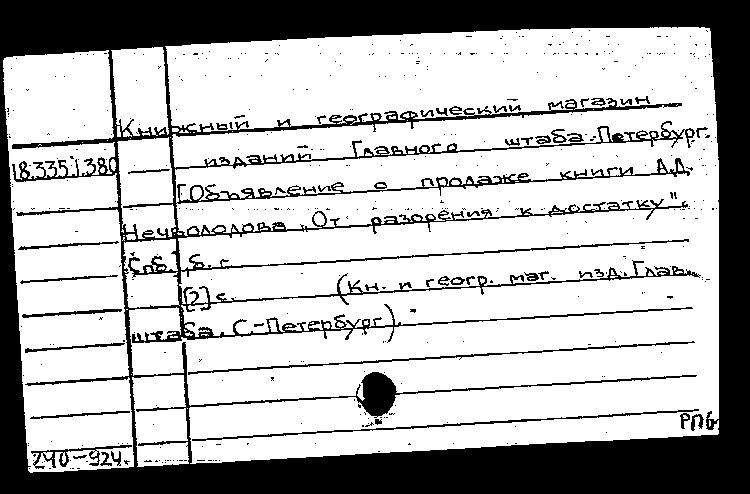 Книжный и географический магазин
18.335.1.380 изданий Главного штаба. Петербург.
[Объявление о продаже книги А.Д.
Нечволодова „От разорения к достатку".
[Спб.], б. г.
[2] с. (Кн. и геогр. маг. изд. Глав.
штаба. С.-Петербург).
РПб
240-924.